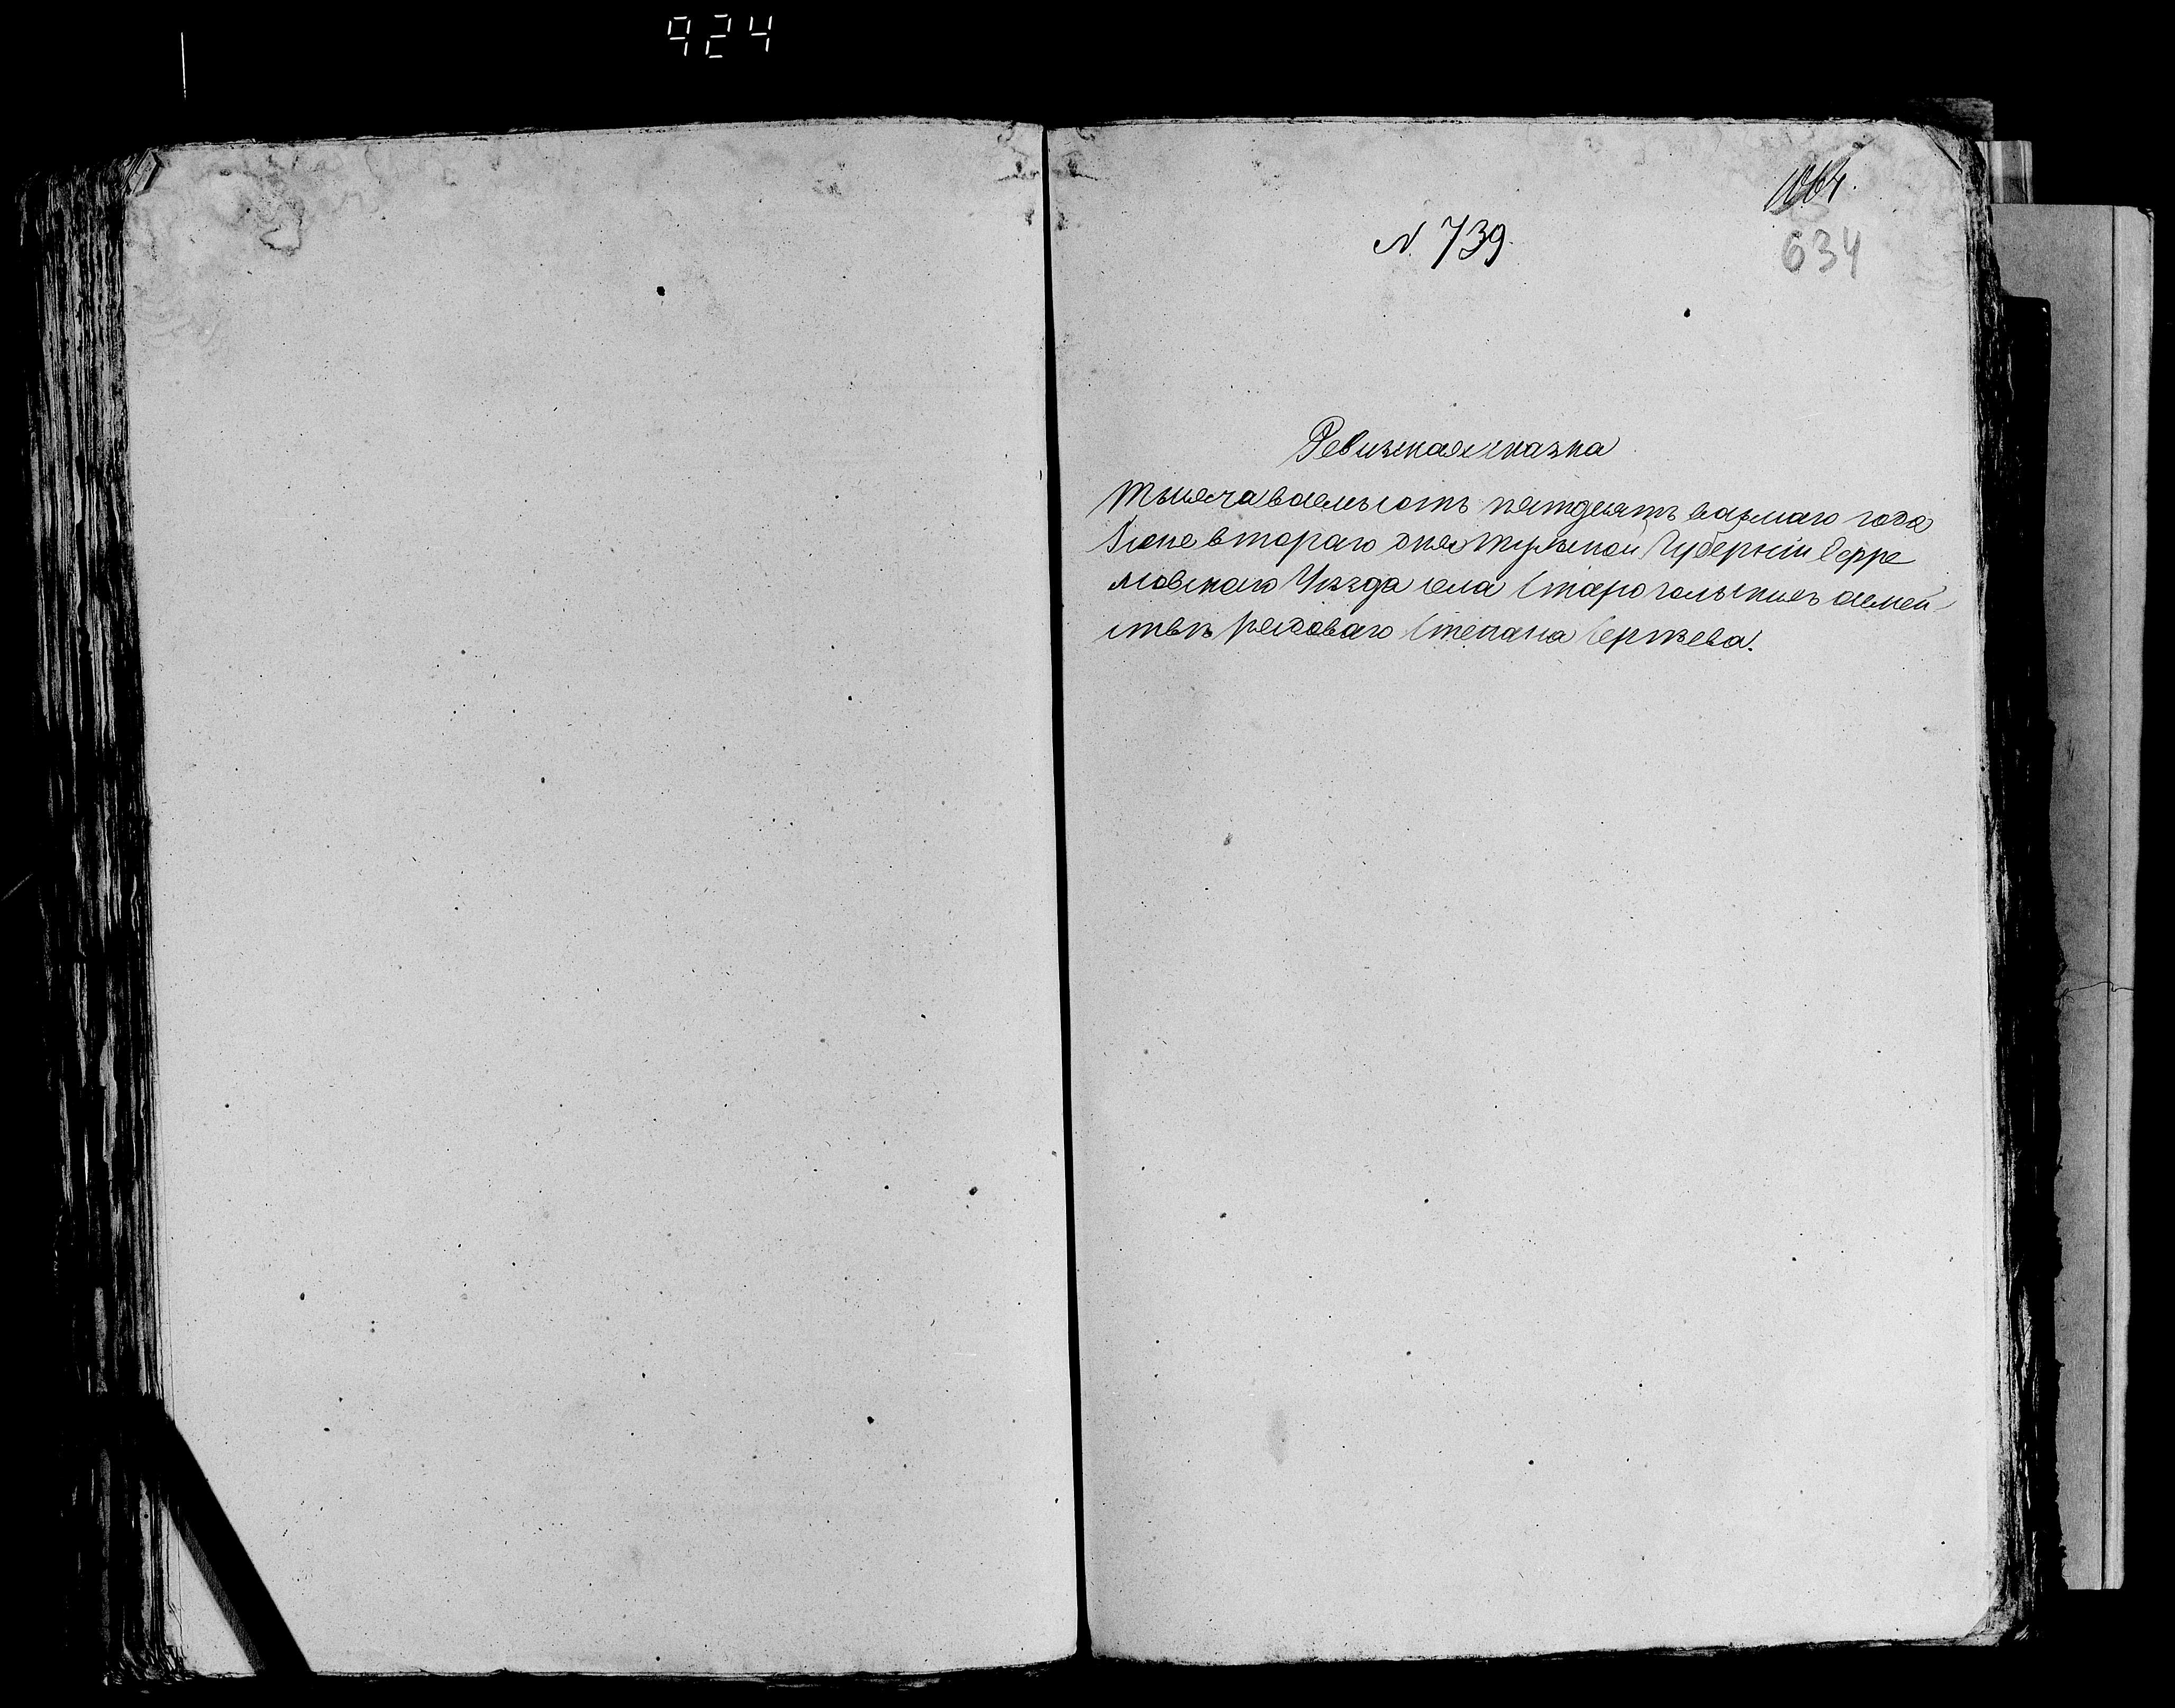 924
N. 739.
634
Ревизская сказка
Тысяча восемьсотъ пятдесятъ восмаго года
Іюня втораго дня Тульской Губерніи Ефре
мовскаго Уѣзда села Староголькихъ семей-
ствѣ рядоваго Степана Сергѣева.